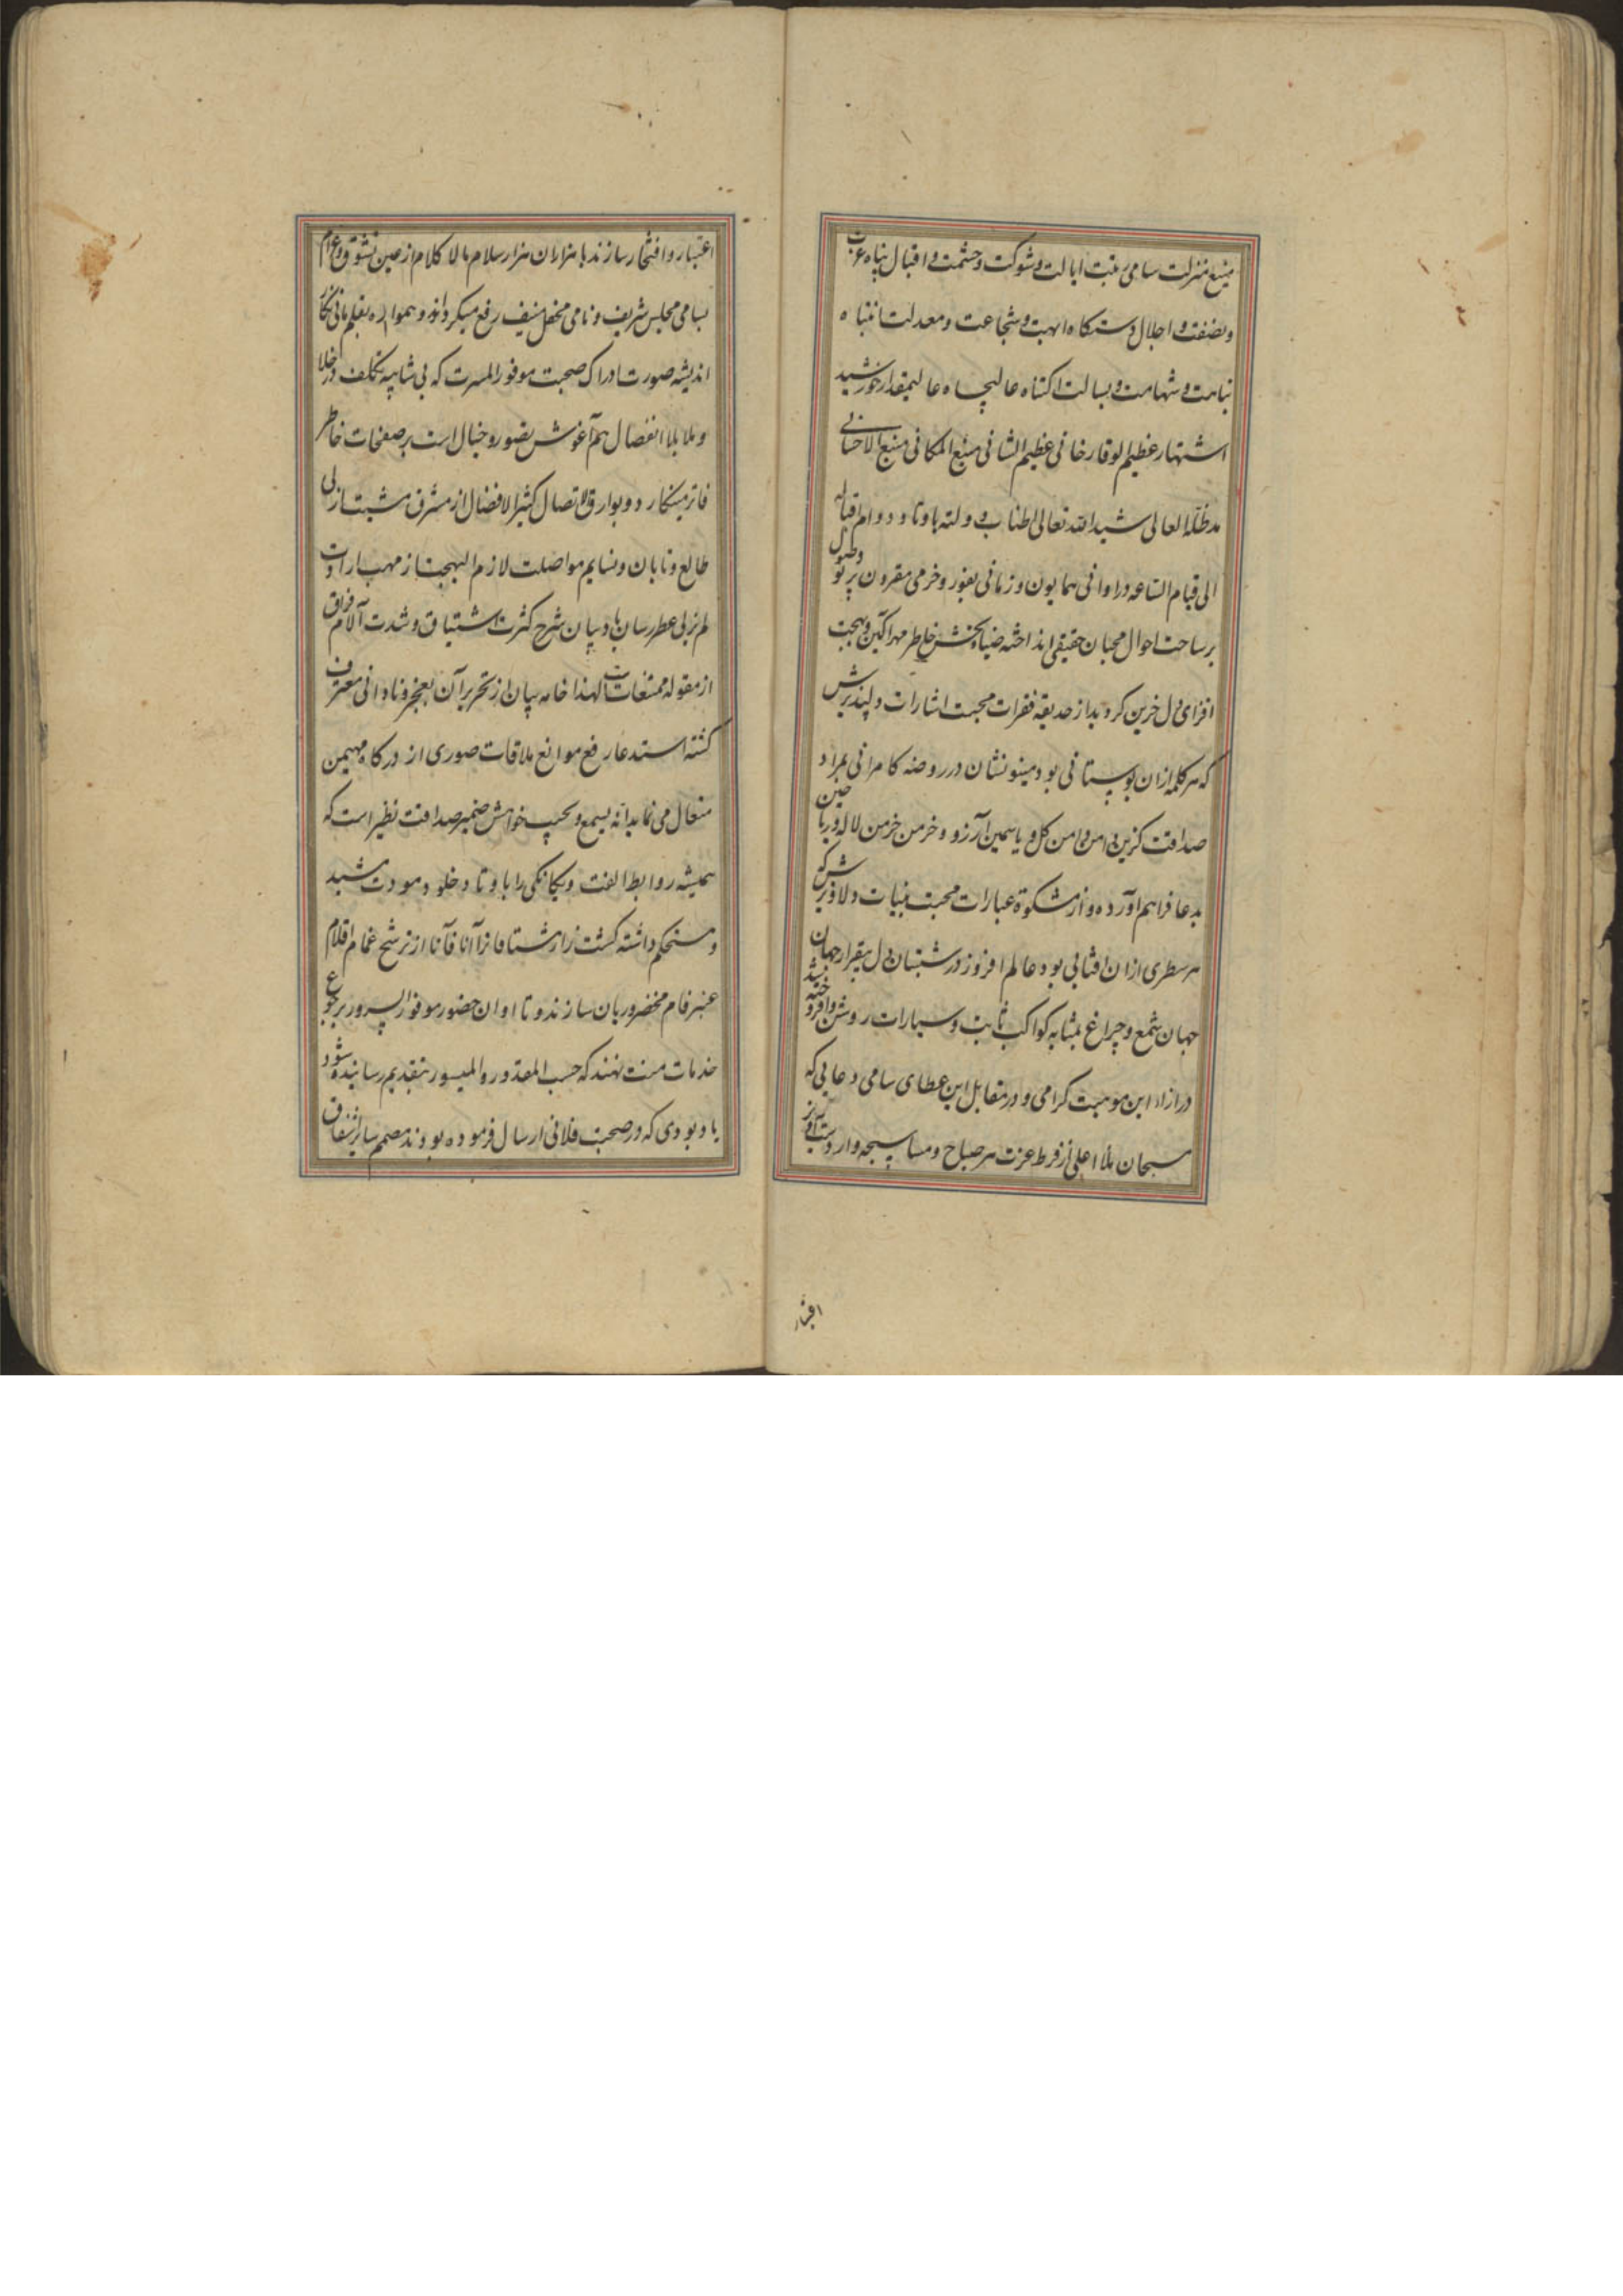 منیع منزلت سامی رتبت ایالت و شوکت و حشمت و اقبال پناه عزت
و نصفت و اجلال دستکاه ابهت و شجاعت و معدلت انتباه
نباهت و شهامت و بسالت اکتناه عالیجاه عالیمقدار خورشید
اشتهار عظیم الوقار خانی عظیم الشانی منیع المکانی منبع الاحسانی
مد ظله العالی شید الله تعالی اطناب دولته باوتاد دوام اقباله
الی قیام الساعه در اوانی همایون و زمانی بفوز و خرمی مقرون پرتو وصول
بر ساحت احوال محبان حقیقی انداخته ضیابخش خاطر مهرآکین و بهجت
افزای دل حزین کردید از حدیقه فقرات محبت اشارات دلپذیرش
که هر کلمه ازان بوستانی بود مینونشان در روضه کامرانی بمراد
صداقت کزین دامن دامن کل و یاسمین آرزو و خرمن خرمن لاله و ریاحین
مدعا فراهم آورده و از مشکوة عبارات محبت بنیات دلاویزش که
هر سطری ازان افتابی بود عالم افروز در شبستان دل بیقرار جهان
جهان شمع و چراغ بمثابه کواکب ثابت و سیارات روشن و افروخته شد
در ازاء این موهبت کرامی و در مقابل این عطای سامی دعایی که
مسبحان ملأ اعلی از فرط عزت هر صباح و مسا سبحه وار دست آویز
افتخار
اعتبار و افتخار سازند با هزاران هزار سلام مالا کلام از عین تشوق و غرام
بسامی مجلس شریف و نامی محفل منیف رفع میکرداند و همواره بقلم مانی نکار
اندیشه صورت ادراک صحبت موفور المسرت که بی شایبه تکلف در خلا
و ملا بلا انفصال هم آغوش تصور و خیال است بر صفحات خاطر
فاتر مینکارد و بوارق الاتصال کثیر الافضال از مشرق مشیت ازلی
طالع و تابان و نسایم مواصلت لازم البهجت از مهب ارادت
لم یزلی عطر رسان باد و بیان شرح کثرت اشتیاق و شدت آلام فراق
از مقوله ممتنعات است لهذا خامه بیان از تحریر آن بعجز و نادانی معترف
کشته استدعا رفع موانع ملاقات صوری از درکاه مهیمن
متعال می نماید انه یسمع و یجیب خواهش ضمیر صداقت نظیر است که
همیشه روابط الفت و یکانکی را باوتاد خلود مودت مشید
و مستحکم داشته کشت زار مشتاقانرا آنا فآنا از ترشح غمام اقلام
عنبر فام مخضر و ریان سازند و تا اوان حضور موفور السرور برجوع
خدمات منت نهند که حسب المقدور و المیسور بتقدیم رسانیده شود
یادبودی که در صحبت فلانی ارسال فرموده بودند مصمم سایر اشفاق